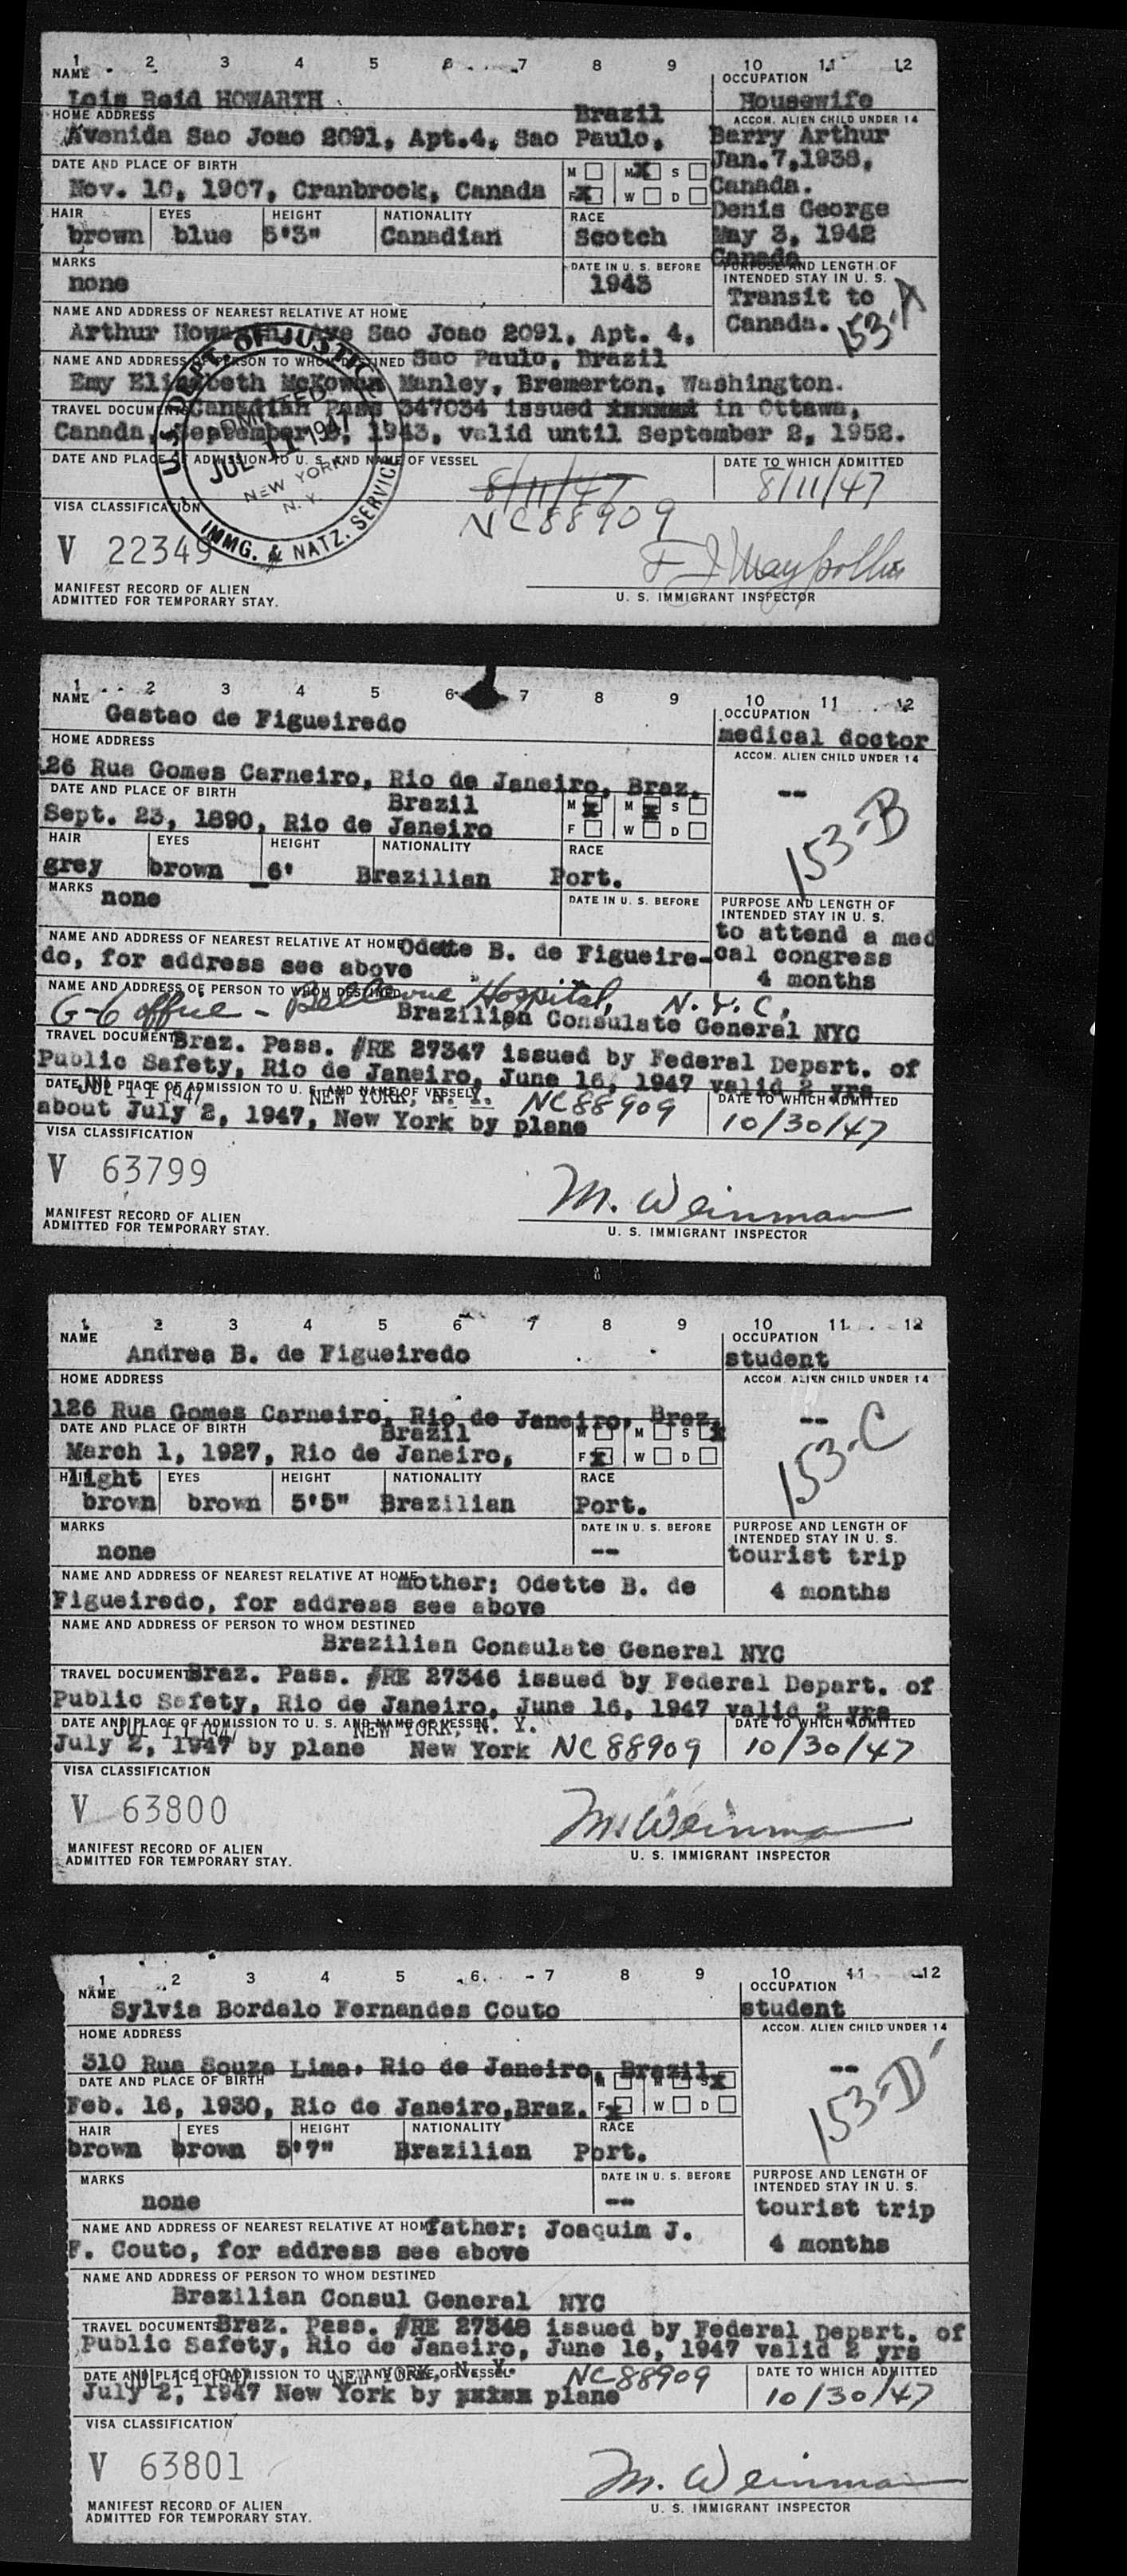 1 2 3 4 5 6 7 8 9 10 11 12
NAME OCCUPATION
Lois Reid HOWARTH Housewife
HOME ADDRESS Brazil ACCOM. ALIEN CHILD UNDER 14
Avenida Sao Joao 2091, Apt.4, Sao Paulo, Barry Arthur
DATE AND PLACE OF BIRTH M M X S Jan.7,1938,
Nov. 10, 1907, Cranbrook, Canada F X W D Canada.
HAIR EYES HEIGHT NATIONALITY RACE Denis George
brown blue 5'3" Canadian Scotch May 3, 1942
MARKS DATE IN U. S. BEFORE Canada
none 1943 PURPOSE AND LENGTH OF
INTENDED STAY IN U. S.
NAME AND ADDRESS OF NEAREST RELATIVE AT HOME Transit to
Arthur Howarth, Ave Sao Joao 2091, Apt. 4, Canada. 153-A
NAME AND ADDRESS OF PERSON TO WHOM DESTINED Sao Paulo, Brazil
Emy Elizabeth McKowan Manley, Bremerton, Washington.
TRAVEL DOCUMENTS Canadian Pass 347034 issued xxxxxx in Ottawa,
Canada, September 3, 1943, valid until September 2, 1952.
DATE AND PLACE OF ADMISSION TO U. S. AND NAME OF VESSEL DATE TO WHICH ADMITTED
8/11/47 8/11/47
VISA CLASSIFICATION NC88909
V 22349
MANIFEST RECORD OF ALIEN
ADMITTED FOR TEMPORARY STAY. U. S. IMMIGRANT INSPECTOR
U. S. DEPT. OF JUSTICE
ADMITTED
JUL 11 1947
NEW YORK
N. Y.
IMMG. & NATZ. SERVICE
1 2 3 4 5 6 7 8 9 10 11 12
NAME OCCUPATION
Gastao de Figueiredo medical doctor
HOME ADDRESS ACCOM. ALIEN CHILD UNDER 14
126 Rua Gomes Carneiro, Rio de Janeiro, Braz. --
DATE AND PLACE OF BIRTH Brazil M X M X S
Sept. 23, 1890, Rio de Janeiro F W D 153-B
HAIR EYES HEIGHT NATIONALITY RACE
grey brown 6' Brazilian Port.
MARKS none DATE IN U. S. BEFORE PURPOSE AND LENGTH OF
INTENDED STAY IN U. S.
NAME AND ADDRESS OF NEAREST RELATIVE AT HOME Odette B. de Figueire- to attend a med
do, for address see above cal congress
4 months
NAME AND ADDRESS OF PERSON TO WHOM DESTINED
G-6 office - Bellevue Hospital, N.Y.C.
Brazilian Consulate General NYC
TRAVEL DOCUMENTS Braz. Pass. #RE 27347 issued by Federal Depart. of
Public Safety, Rio de Janeiro, June 16, 1947 valid 2 yrs
DATE AND PLACE OF ADMISSION TO U. S. AND NAME OF VESSEL DATE TO WHICH ADMITTED
JUL 11 1947 NEW YORK, N. Y. NC88909
about July 2, 1947, New York by plane 10/30/47
VISA CLASSIFICATION
V 63799
M. Weinman
MANIFEST RECORD OF ALIEN
ADMITTED FOR TEMPORARY STAY. U. S. IMMIGRANT INSPECTOR
1 2 3 4 5 6 7 8 9 10 11 12
NAME OCCUPATION
Andrea B. de Figueiredo student
HOME ADDRESS ACCOM. ALIEN CHILD UNDER 14
126 Rua Gomes Carneiro, Rio de Janeiro, Braz. --
DATE AND PLACE OF BIRTH Brazil M M S X
March 1, 1927, Rio de Janeiro, F X W D 153-C
HAIR light EYES HEIGHT NATIONALITY RACE
brown brown 5'5" Brazilian Port.
MARKS DATE IN U. S. BEFORE PURPOSE AND LENGTH OF
INTENDED STAY IN U. S.
none -- tourist trip
NAME AND ADDRESS OF NEAREST RELATIVE AT HOME mother: Odette B. de 4 months
Figueiredo, for address see above
NAME AND ADDRESS OF PERSON TO WHOM DESTINED
Brazilian Consulate General NYC
TRAVEL DOCUMENTS Braz. Pass. #RE 27346 issued by Federal Depart. of
Public Safety, Rio de Janeiro, June 16, 1947 valid 2 yrs
DATE AND PLACE OF ADMISSION TO U. S. AND NAME OF VESSEL DATE TO WHICH ADMITTED
JUL 11 1947 NEW YORK, N. Y.
July 2, 1947 by plane New York NC88909 10/30/47
VISA CLASSIFICATION
V 63800
M. Weinman
MANIFEST RECORD OF ALIEN
ADMITTED FOR TEMPORARY STAY. U. S. IMMIGRANT INSPECTOR
1 2 3 4 5 6 7 8 9 10 11 12
NAME OCCUPATION
Sylvia Bordalo Fernandes Couto student
HOME ADDRESS ACCOM. ALIEN CHILD UNDER 14
310 Rua Souza Lima, Rio de Janeiro, Brazil --
DATE AND PLACE OF BIRTH M M S X
Feb. 16, 1930, Rio de Janeiro,Braz. F X W D 153-D
HAIR EYES HEIGHT NATIONALITY RACE
brown brown 5'7" Brazilian Port.
MARKS DATE IN U. S. BEFORE PURPOSE AND LENGTH OF
INTENDED STAY IN U. S.
none -- tourist trip
NAME AND ADDRESS OF NEAREST RELATIVE AT HOME father: Joaquim J. 4 months
F. Couto, for address see above
NAME AND ADDRESS OF PERSON TO WHOM DESTINED
Brazilian Consul General NYC
TRAVEL DOCUMENTS Braz. Pass. #RE 27348 issued by Federal Depart. of
Public Safety, Rio de Janeiro, June 16, 1947 valid 2 yrs
DATE AND PLACE OF ADMISSION TO U. S. AND NAME OF VESSEL DATE TO WHICH ADMITTED
JUL 11 1947 NEW YORK, N. Y. NC88909
July 2, 1947 New York by plane 10/30/47
VISA CLASSIFICATION
V 63801
M. Weinman
MANIFEST RECORD OF ALIEN
ADMITTED FOR TEMPORARY STAY. U. S. IMMIGRANT INSPECTOR